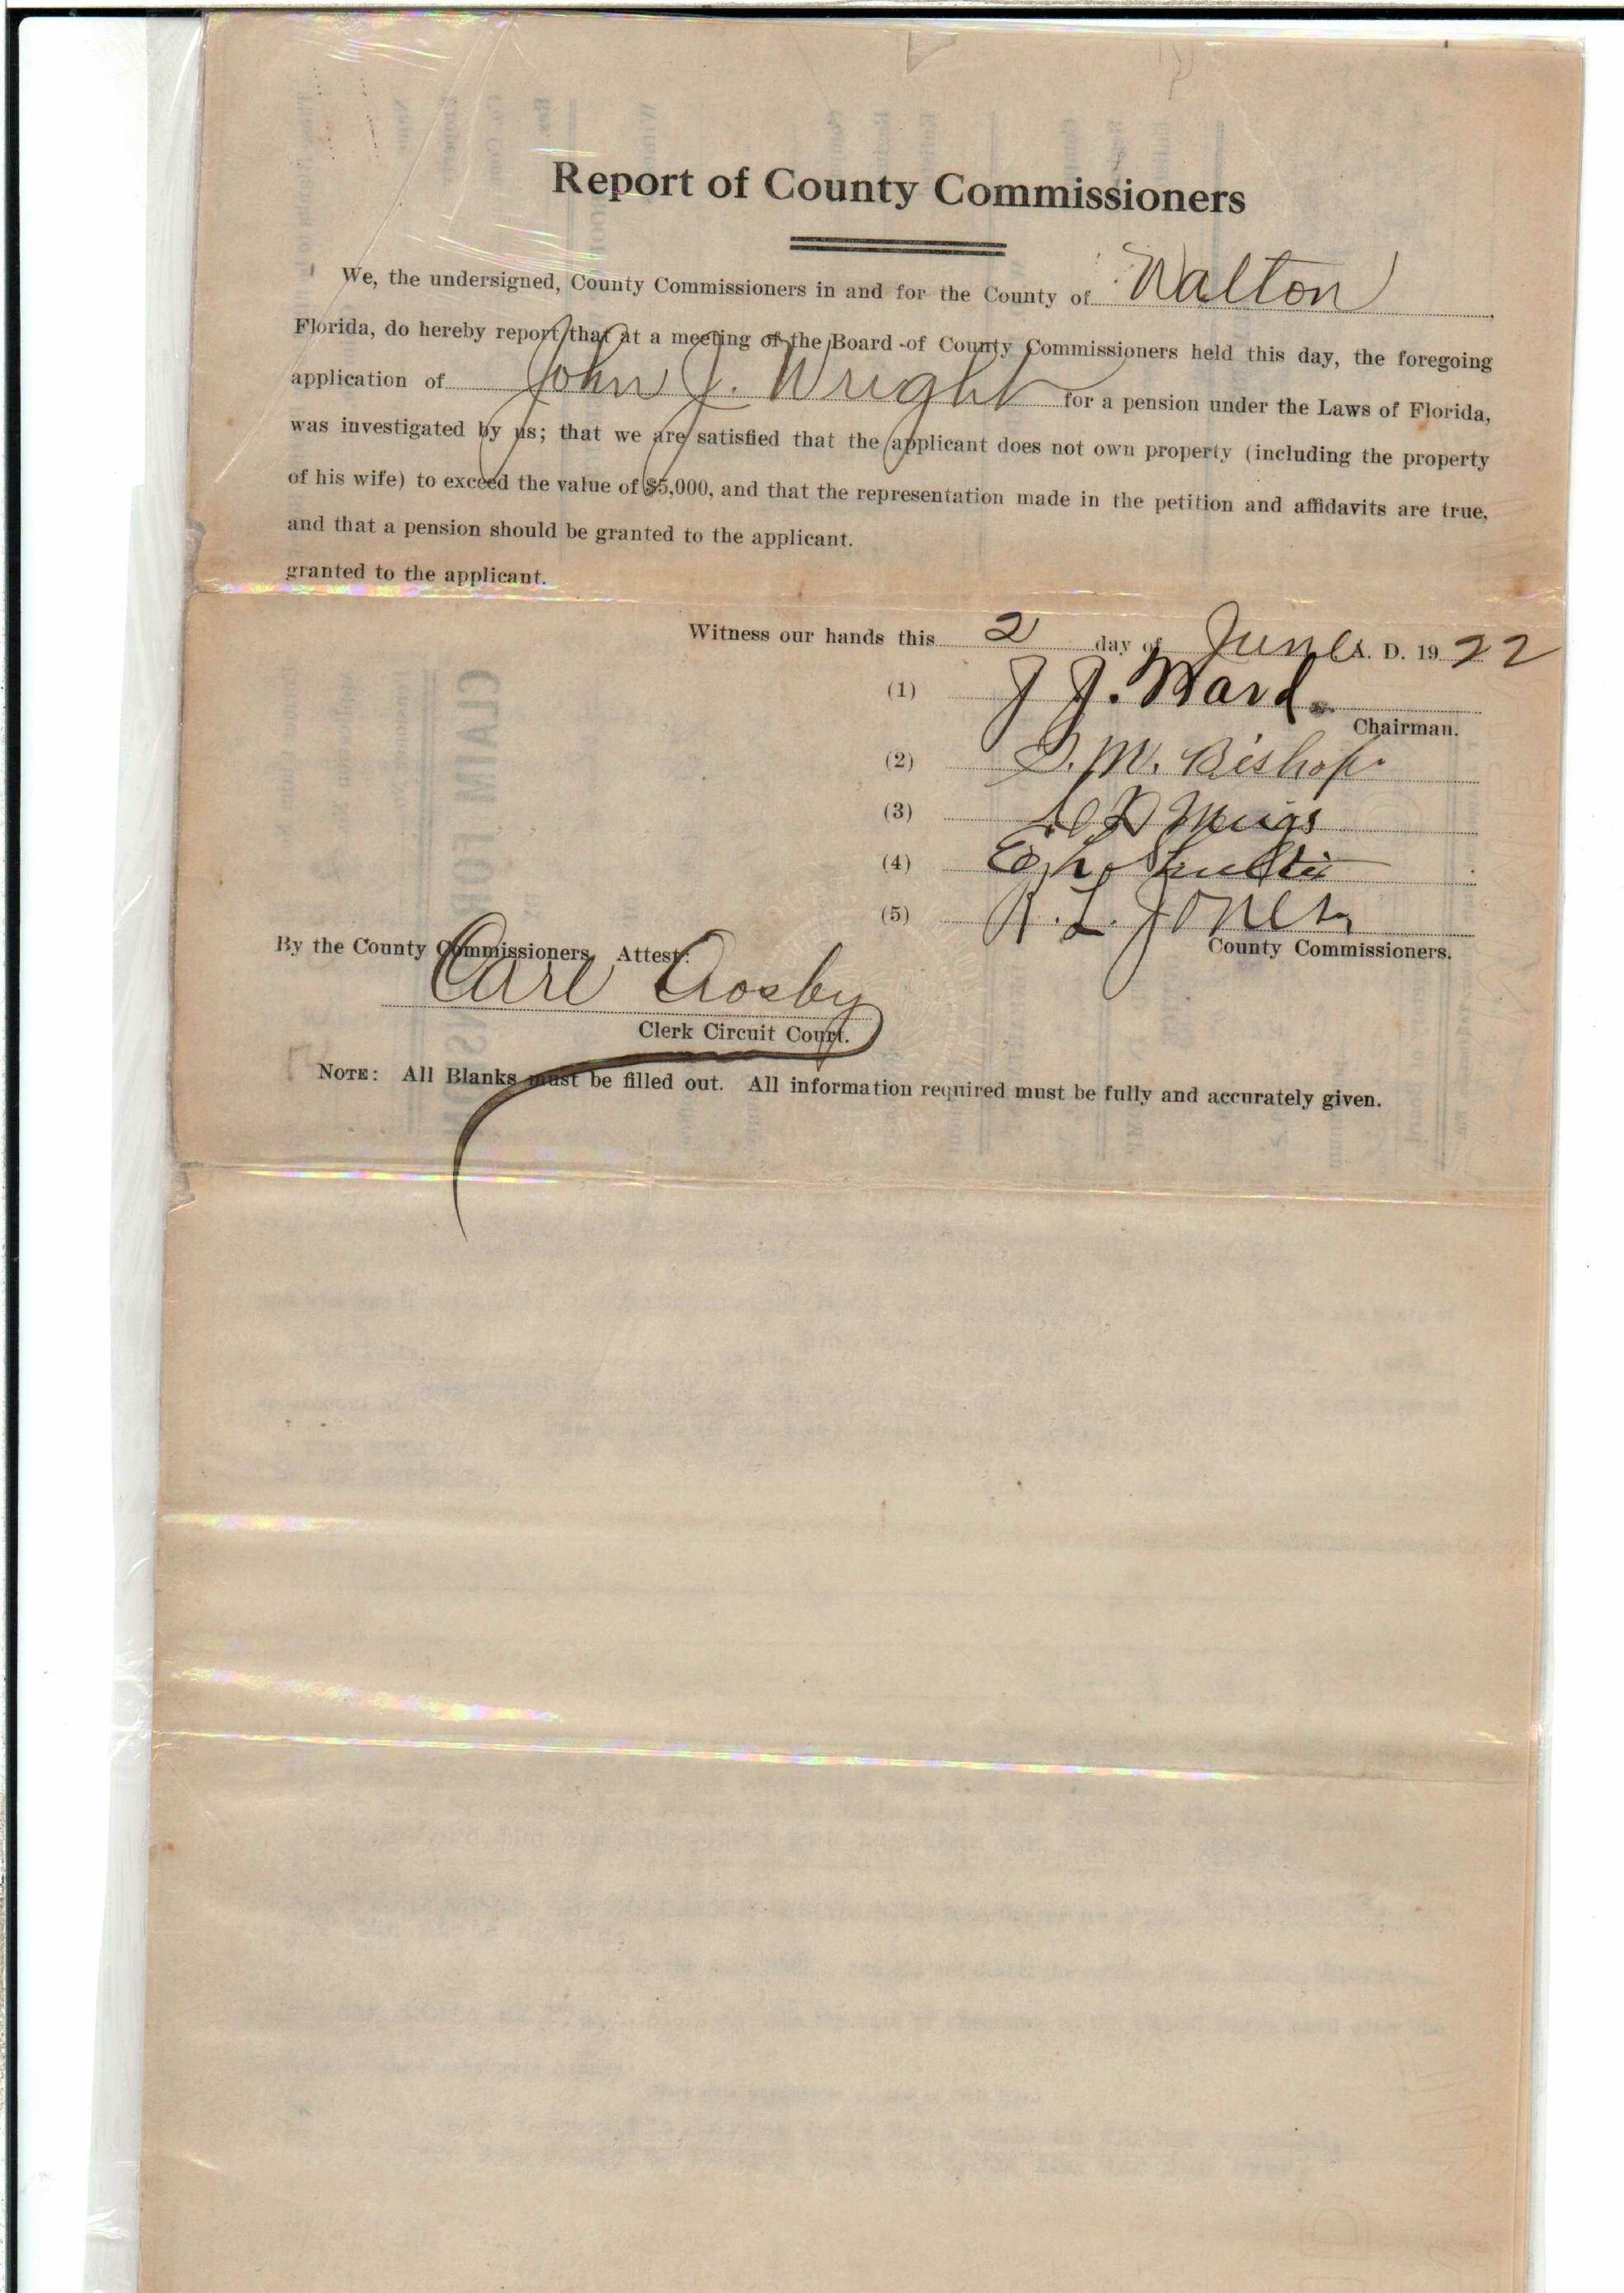 Report of County Commissioners
We, the undersigned, County Commissioners in and for the County of Walton
Florida, do hereby report that at a meeting of the Board of County Commissioners held this day, the foregoing
application of John J. Wright for a pension under the Laws of Florida,
was investigated by us; that we are satisfied that the applicant does not own property (including the property
of his wife) to exceed the value of $5,000, and that the representation made in the petition and affidavits are true,
and that a pension should be granted to the applicant.
granted to the applicant.
Witness our hands this 2 day of June A. D. 1922
(1) J J. Ward.
Chairman.
(2) S. M. Bishop
(3) Meigs
(4)
(5) R. L. Jones
County Commissioners.
By the County Commissioners, Attest:
Carl Crosby
Clerk Circuit Court.
NOTE: All Blanks must be filled out. All information required must be fully and accurately given.